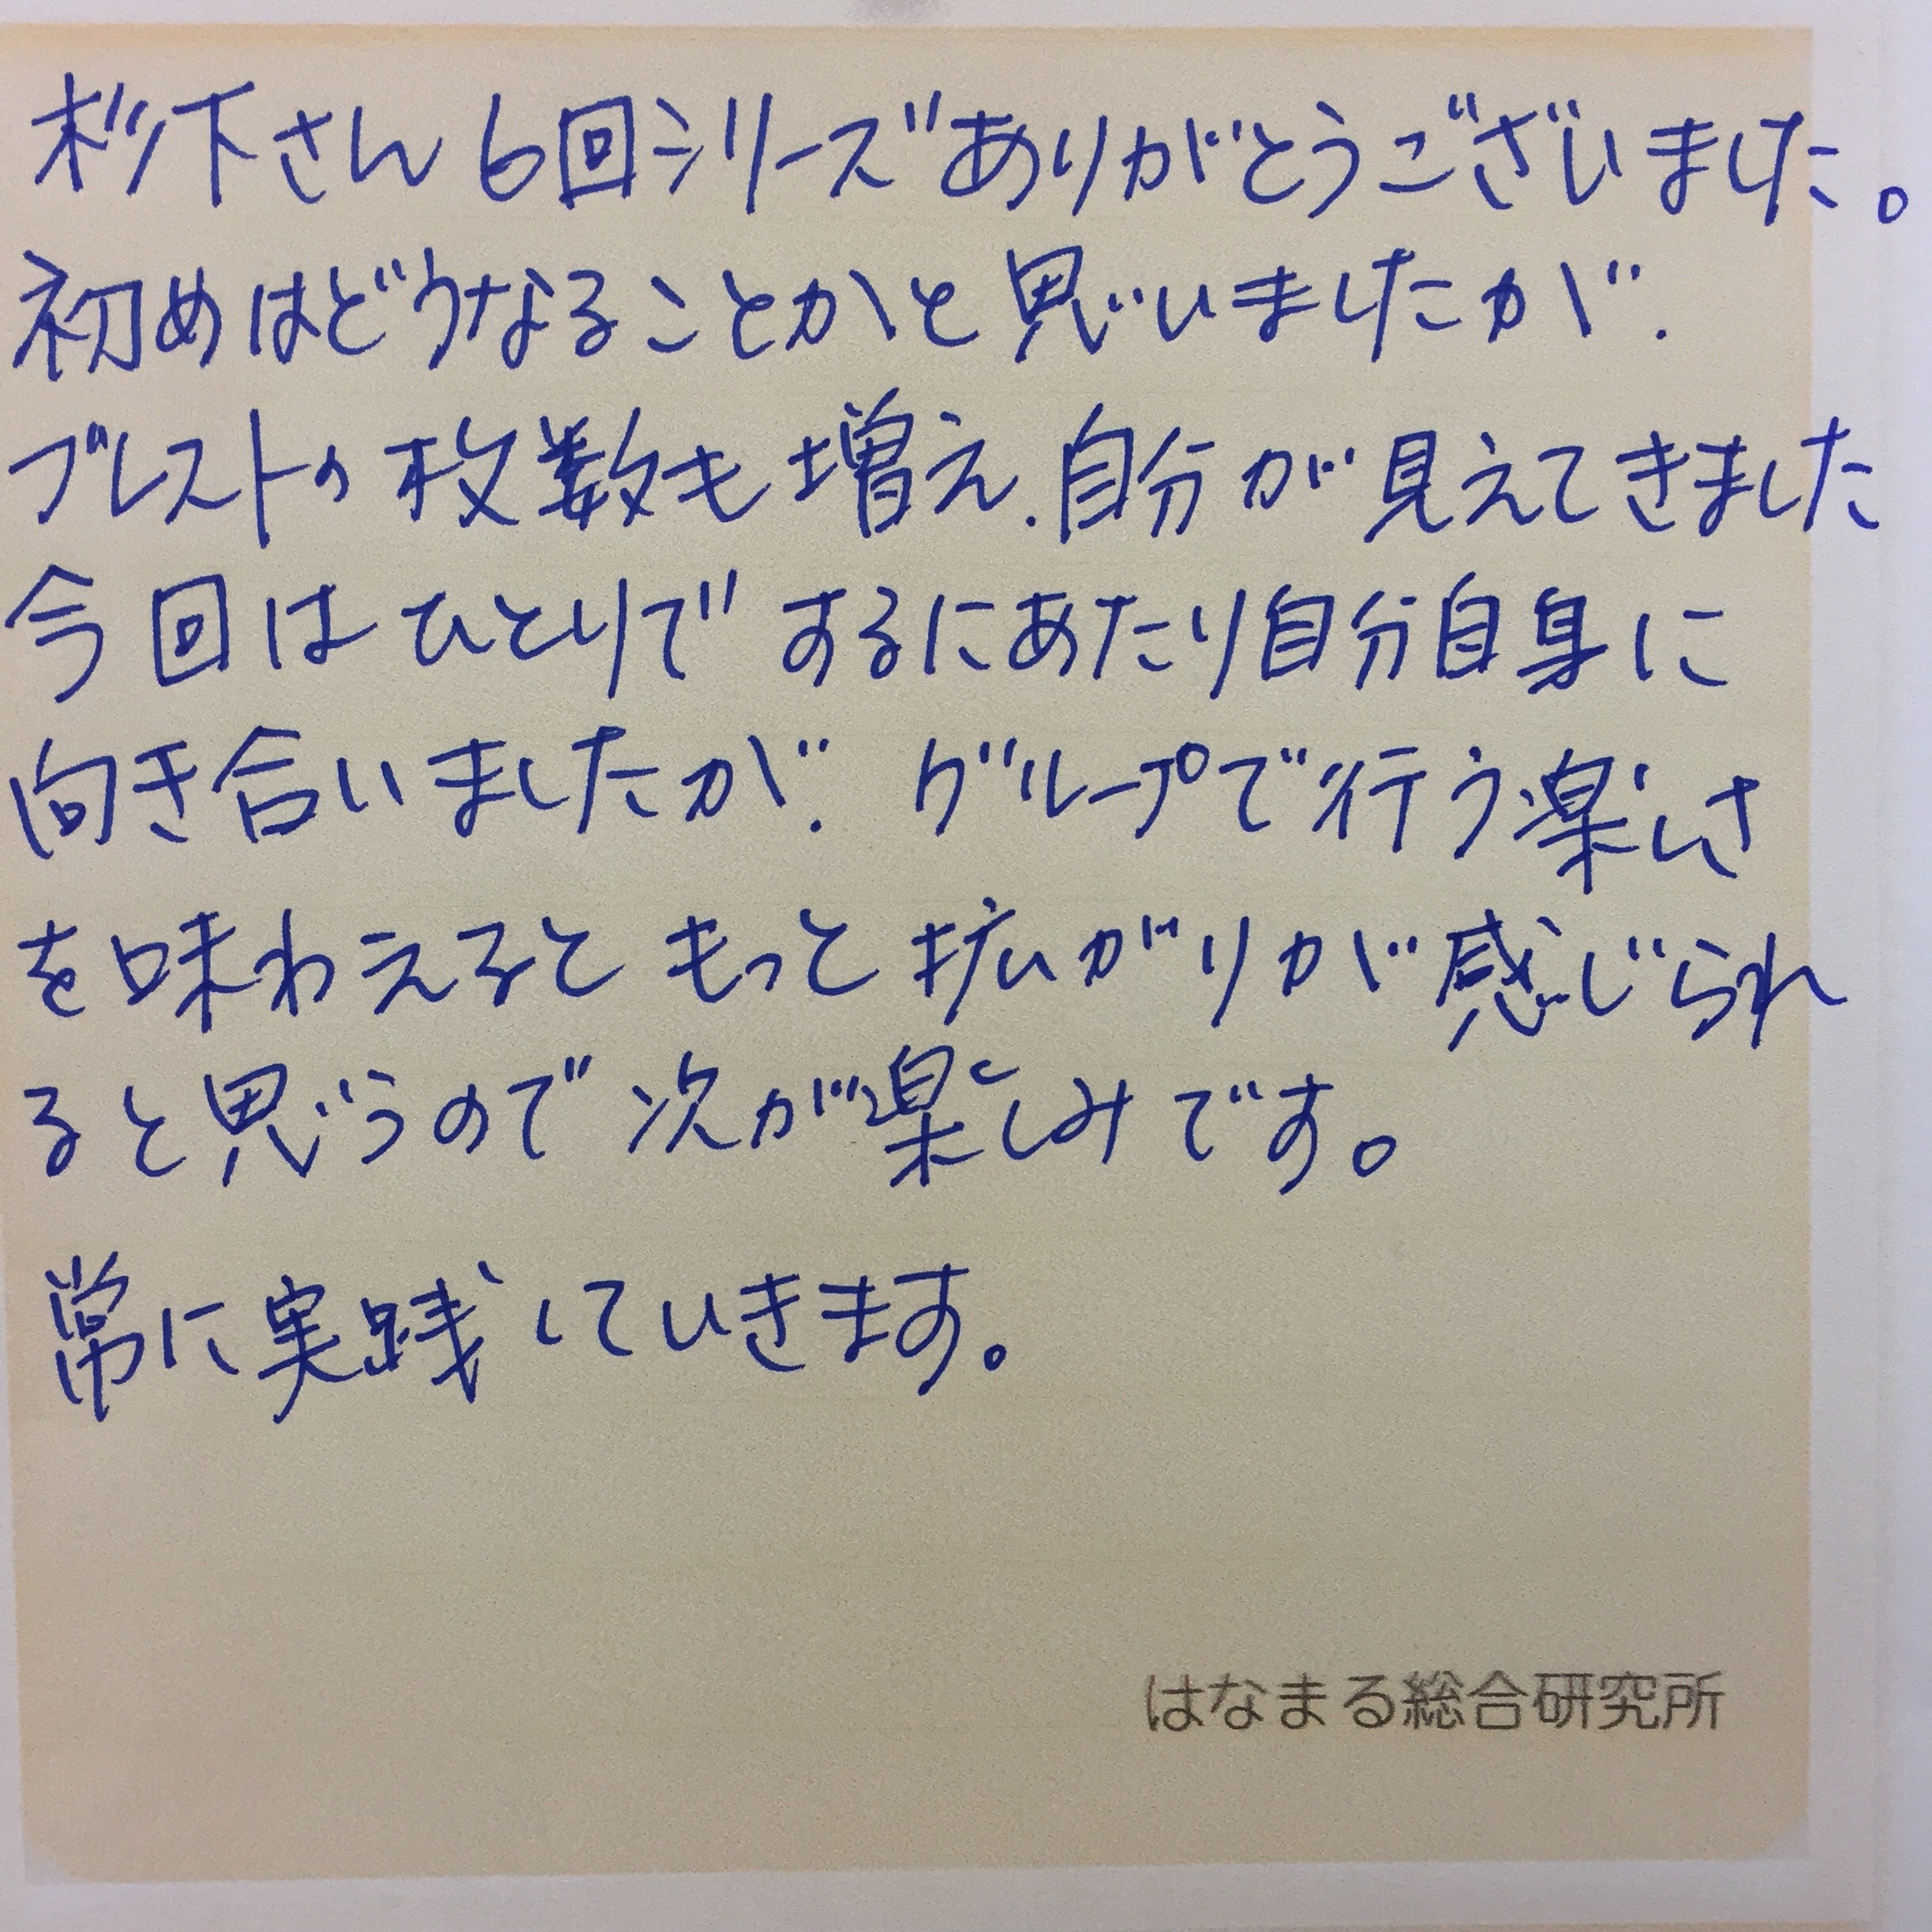 杉下さん6回シリーズありがとうございました。
初めはどうなることかと思いましたが、
ブレストの枚数も増え、自分が見えてきました
今回はひとりでするにあたり自分自身に
向き合いましたが、グループで行う楽しさ
を味わえるともっと拡がりが感じられ
ると思うので次が楽しみです。
常に実践していきます。
はなまる総合研究所